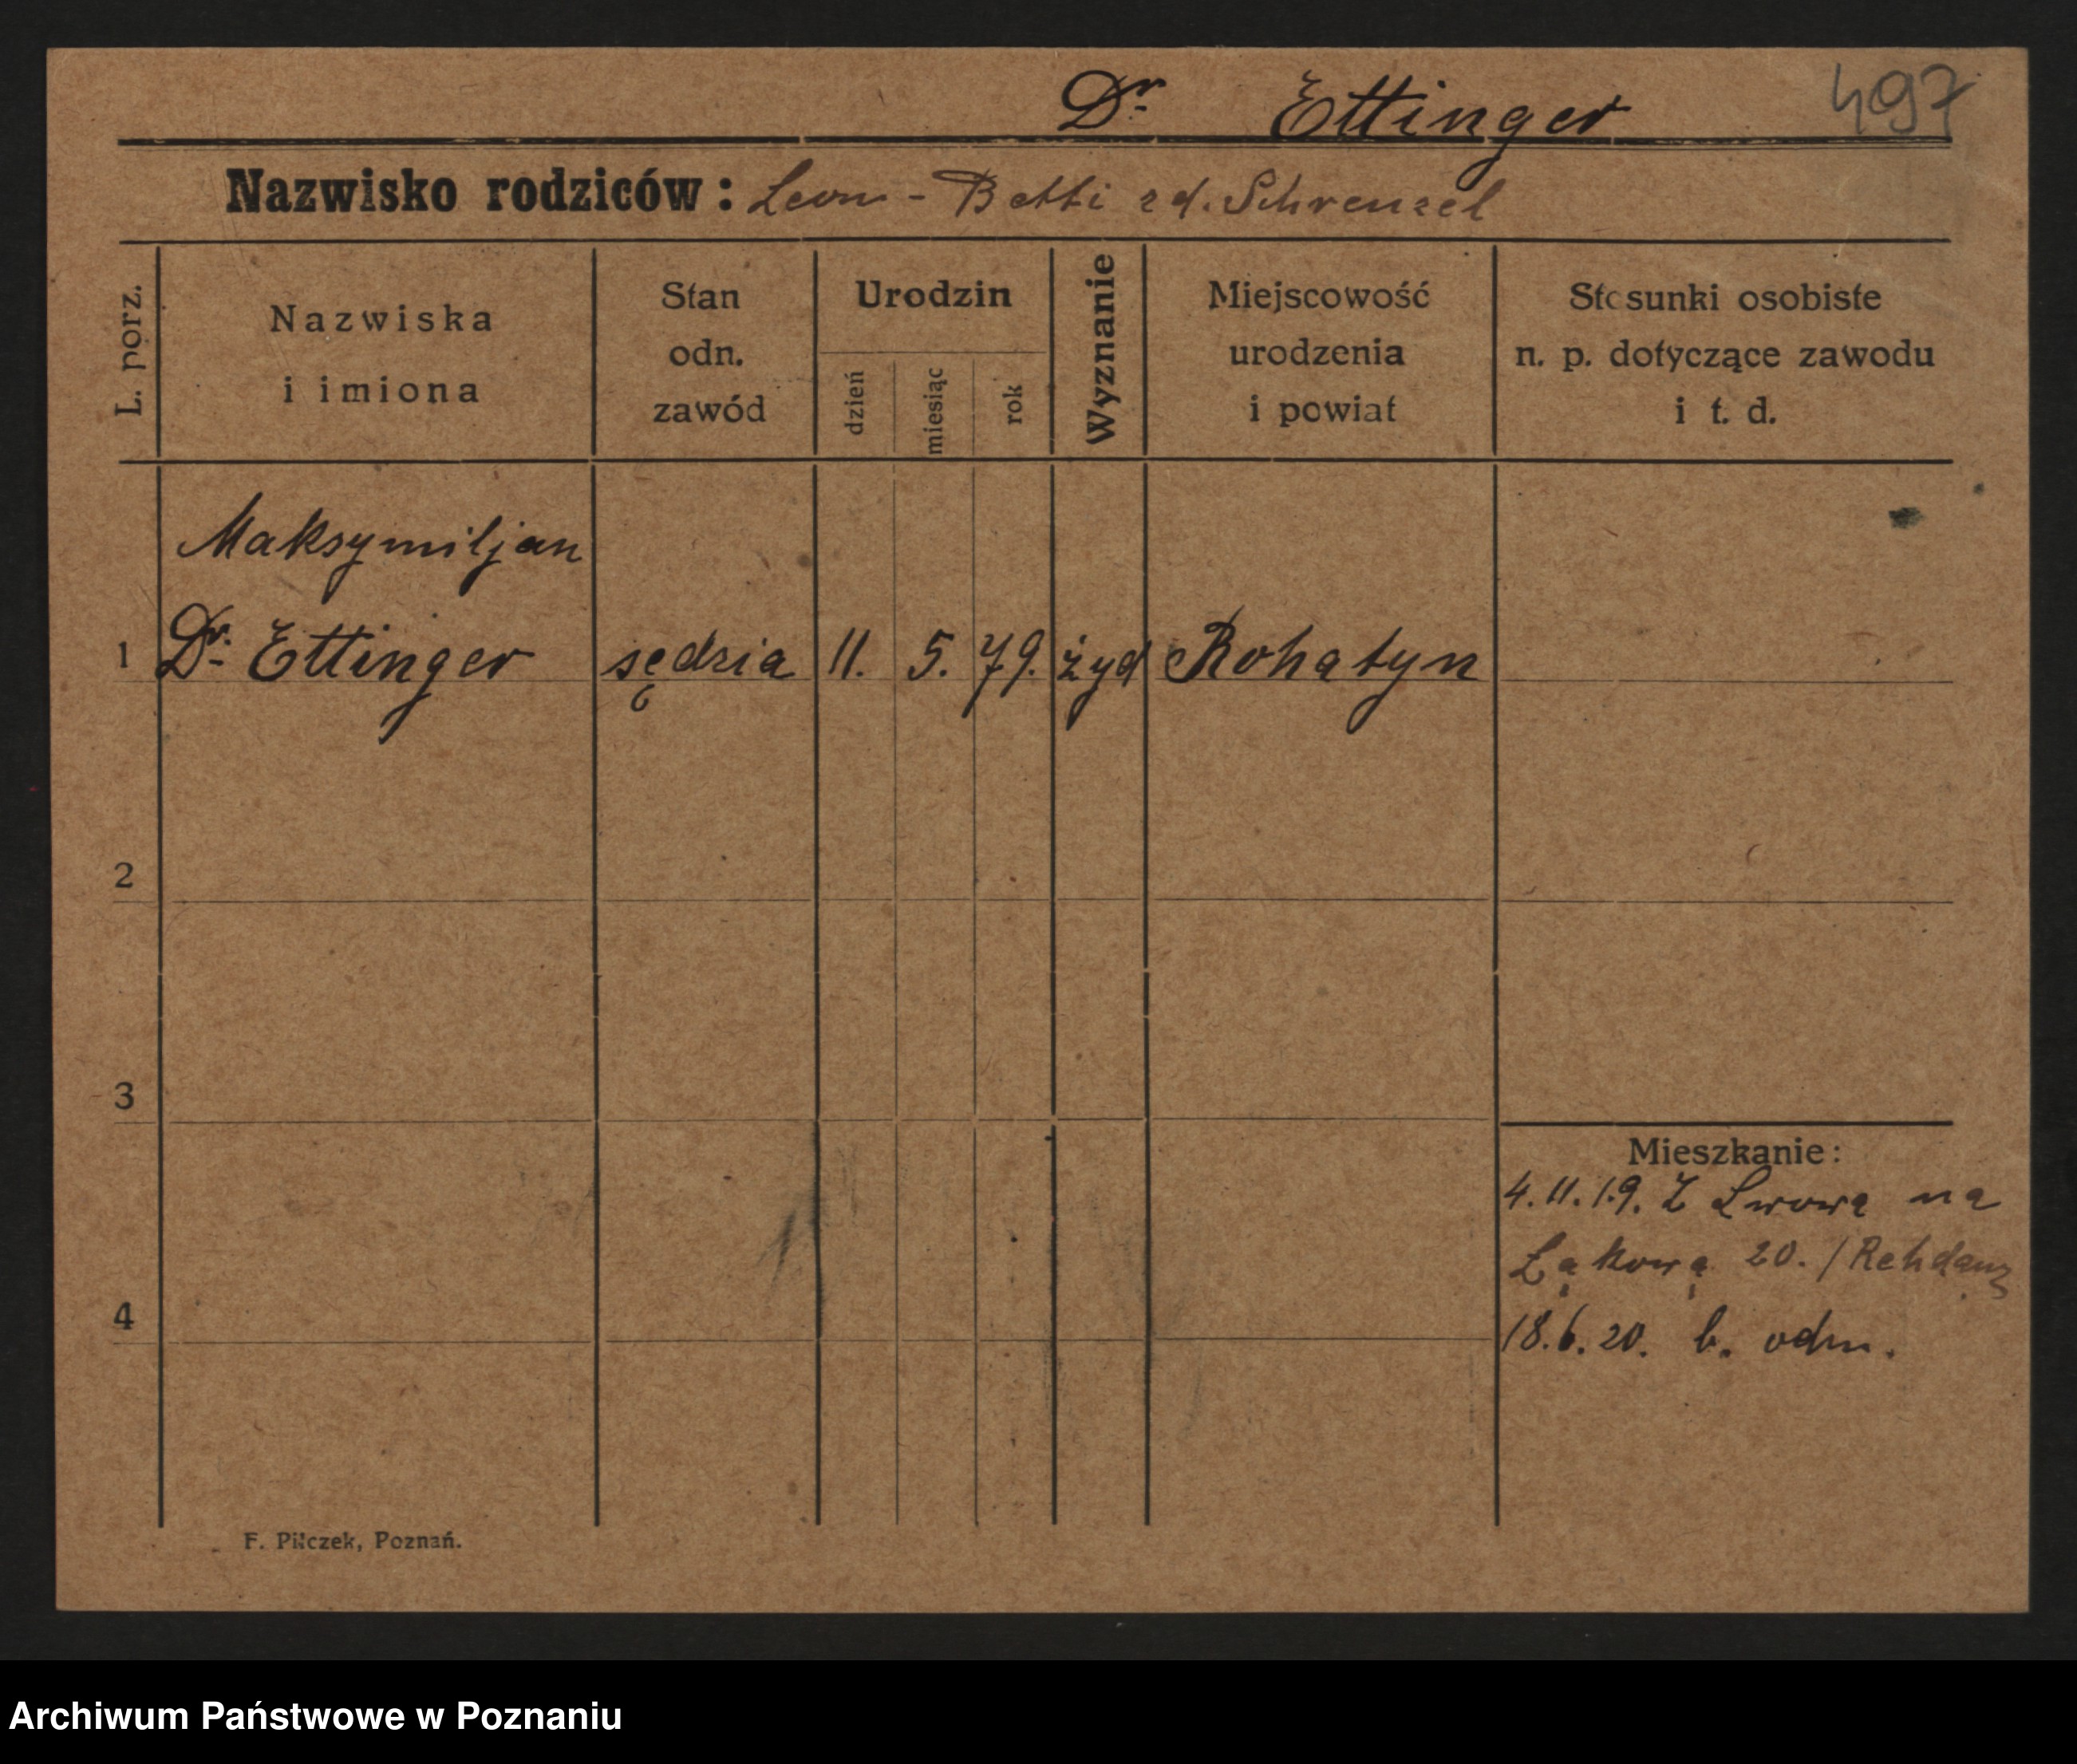 Dr. Ettinger 497
Nazwisko rodziców: Leon - Betti zd. Schrenzel
L. porz.
Nazwiska
i imiona
Stan
odn.
zawód
Urodzin
dzień
miesiąc
rok
Wyznanie
Miejscowość
urodzenia
i powiat
Stosunki osobiste
n. p. dotyczące zawodu
i t. d.
Maksymiljan
1 Dr. Ettinger sędzia 11. 5. 79. żyd Rohatyn
2
3
Mieszkanie:
4.11.19. Z Lwowa na
Łąkową 20. / Rehdanz
4
18.6.20. b. odm.
F. Pilczek, Poznań.
Archiwum Państwowe w Poznaniu